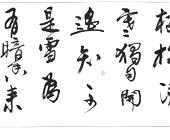 枝梅凌
寒獨自開
遥知不
是雪為
有暗香来